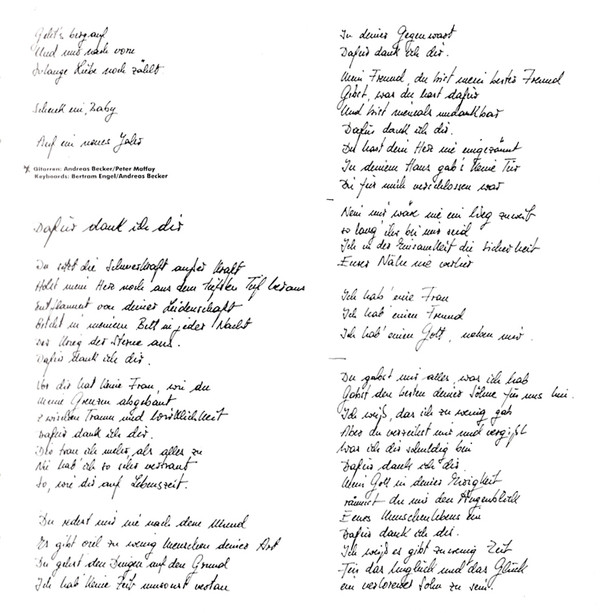 Geht's bergauf
Und nur nach vorn
Solange Liebe noch zählt
Schenk ein, Baby
Auf ein neues Jahr
Gitarren: Andreas Becker/Peter Maffay
Keyboards: Bertram Engel/Andreas Becker
Dafür dank ich dir
Du setzt die Schwerkraft außer Kraft
Holst mein Herz noch aus dem tiefsten Tief heraus
Entflammt von deiner Leidenschaft
Bricht in meinem Bett in jeder Nacht
der Krieg der Sterne aus.
Dafür dank ich dir.
Vor dir hat keine Frau, wie du
Meine Grenzen abgebaut
zwischen Traum und Wirklichkeit
Dafür dank ich dir.
Dir trau ich mehr, als alles zu
Nie hab' ich so sehr vertraut
So, wie dir auf Lebenszeit.
Du redest mir nie nach dem Mund
Es gibt viel zu wenig Menschen deiner Art
Du gehst den Dingen auf den Grund
Ich hab' keine Zeit umsonst vertan
In deiner Gegenwart
Dafür dank ich dir.
Mein Freund, du bist mein bester Freund
Gibst, was du hast dafür
Und bist niemals undankbar
Dafür dank ich dir.
Du hast dein Herz nie eingezäunt
In deinem Haus gab's keine Tür
Die für mich verschlossen war
Nein mir wäre nie ein Weg zu weit
so lang' ihr bei mir seid
Ich in der Einsamkeit die Sicherheit
Eurer Nähe nie verlier
Ich hab' eine Frau
Ich hab' einen Freund
Ich hab' einen Gott, neben mir.
Du gabst mir alles, was ich hab
Gabst den besten deiner Söhne für uns hin.
Ich weiß, das ich zu wenig gab
Aber du verzeihst mir und vergißt
was ich dir schuldig bin
Dafür dank ich dir.
Mein Gott in deiner Ewigkeit
räumst du mir den Augenblick
Eines Menschenlebens ein
Dafür dank ich dir.
Ich weiß es gibt zu wenig Zeit
Für das Unglück und das Glück
ein verlorener Sohn zu sein.